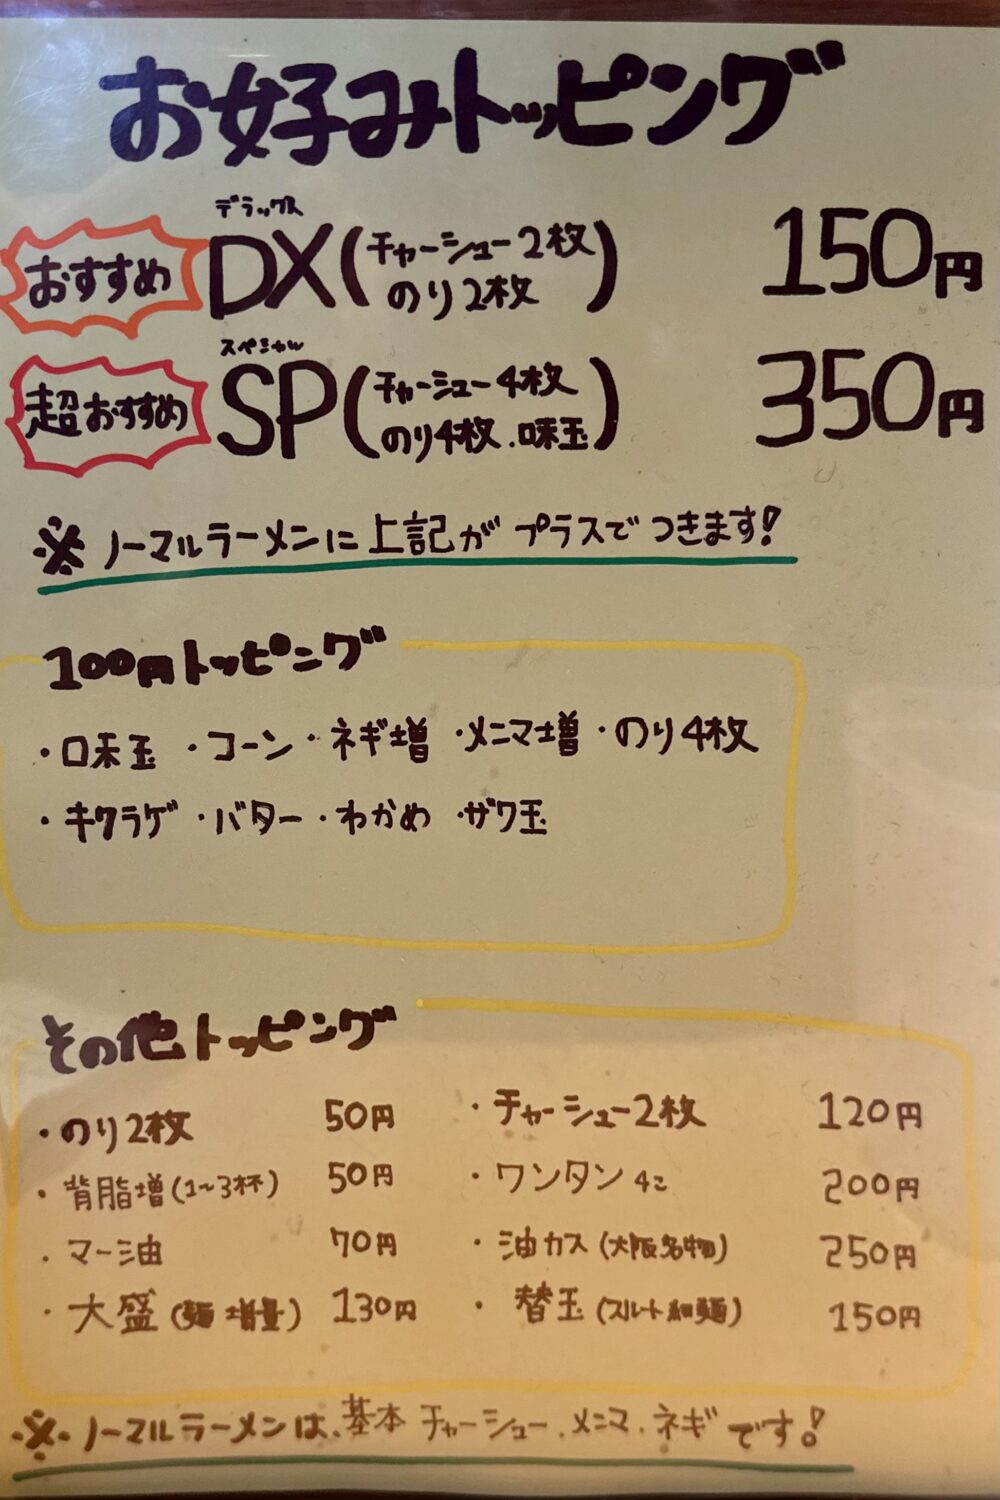 お好みトッピング
デラックス
おすすめ DX(チャーシュー2枚 のり2枚) 150円
スペシャル
超おすすめ SP(チャーシュー4枚 のり4枚、味玉) 350円
※ ノーマルラーメンに上記がプラスでつきます!
100円トッピング
・味玉 ・コーン ・ネギ増 ・メンマ増 ・のり4枚
・キクラゲ ・バター ・わかめ ・ザク玉
その他トッピング
・のり2枚 50円 ・チャーシュー2枚 120円
・背脂増(1~3杯) 50円 ・ワンタン4コ 200円
・マー油 70円 ・油カス(大阪名物) 250円
・大盛(麺増量) 130円 ・替玉(ストレート細麺) 150円
※ ノーマルラーメンは、基本チャーシュー、メンマ、ネギです!